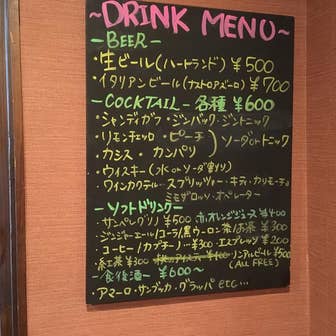 ~DRINK MENU~
-BEER-
・生ビール(ハートランド) ¥500
・イタリアンビール(ナストロアズーロ) ¥700
-COCKTAIL- 各種 ¥600
・シャンディガフ・ジンバック・ジントニック
・リモンチェッロ ・ピーチ
・カシス ・カンパリ ) ソーダorトニック
・ウィスキー(水orソーダ割り)
・ワインカクテル…スプリッツァー・キティ・カリモーチョ
ミモザ・ロッソ・オペレーター
-ソフトドリンク-
・サンペレグリノ ¥500 ・オレンジジュース ¥400
・ジンジャーエール/コーラ/黒ウーロン茶/お茶 ¥300
・コーヒー/カプチーノ…¥300 ・エスプレッソ ¥200
・紅茶 ¥300 ・ノンアルビール ¥500
(ALL FREE)
-食後酒- ¥600~
・アマーロ・サンブッカ・グラッパ etc…